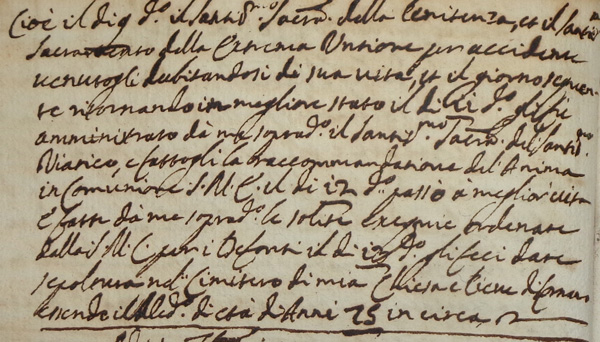 Cioè il di 9 d.º il Santis.mo Sacra.to della Penitenza, et il Santis.mo
Sacramento della Estrema Untione per accidente
venutogli dubitandosi di sua vita, et il giorno seguen-
te ritornando in megliore stato il di d.º gli fu
amministrato dà me soprad.º il Santis.mo Sacra.to del Santis.mo
Viatico, e fattogli la raccommandatione del Anima
in Comunione S. M. C. il di 12 d.º passò a meglior vita
E fatte dà me soprad.º le solite exequie ordenate
dalla S. M. C. per i Defonti il di 13 d.º gli feci dare
sepoltura nel Cimitero di mia Chiesa e Pieve di
essendo il d.º di età di Anni 75 in circa